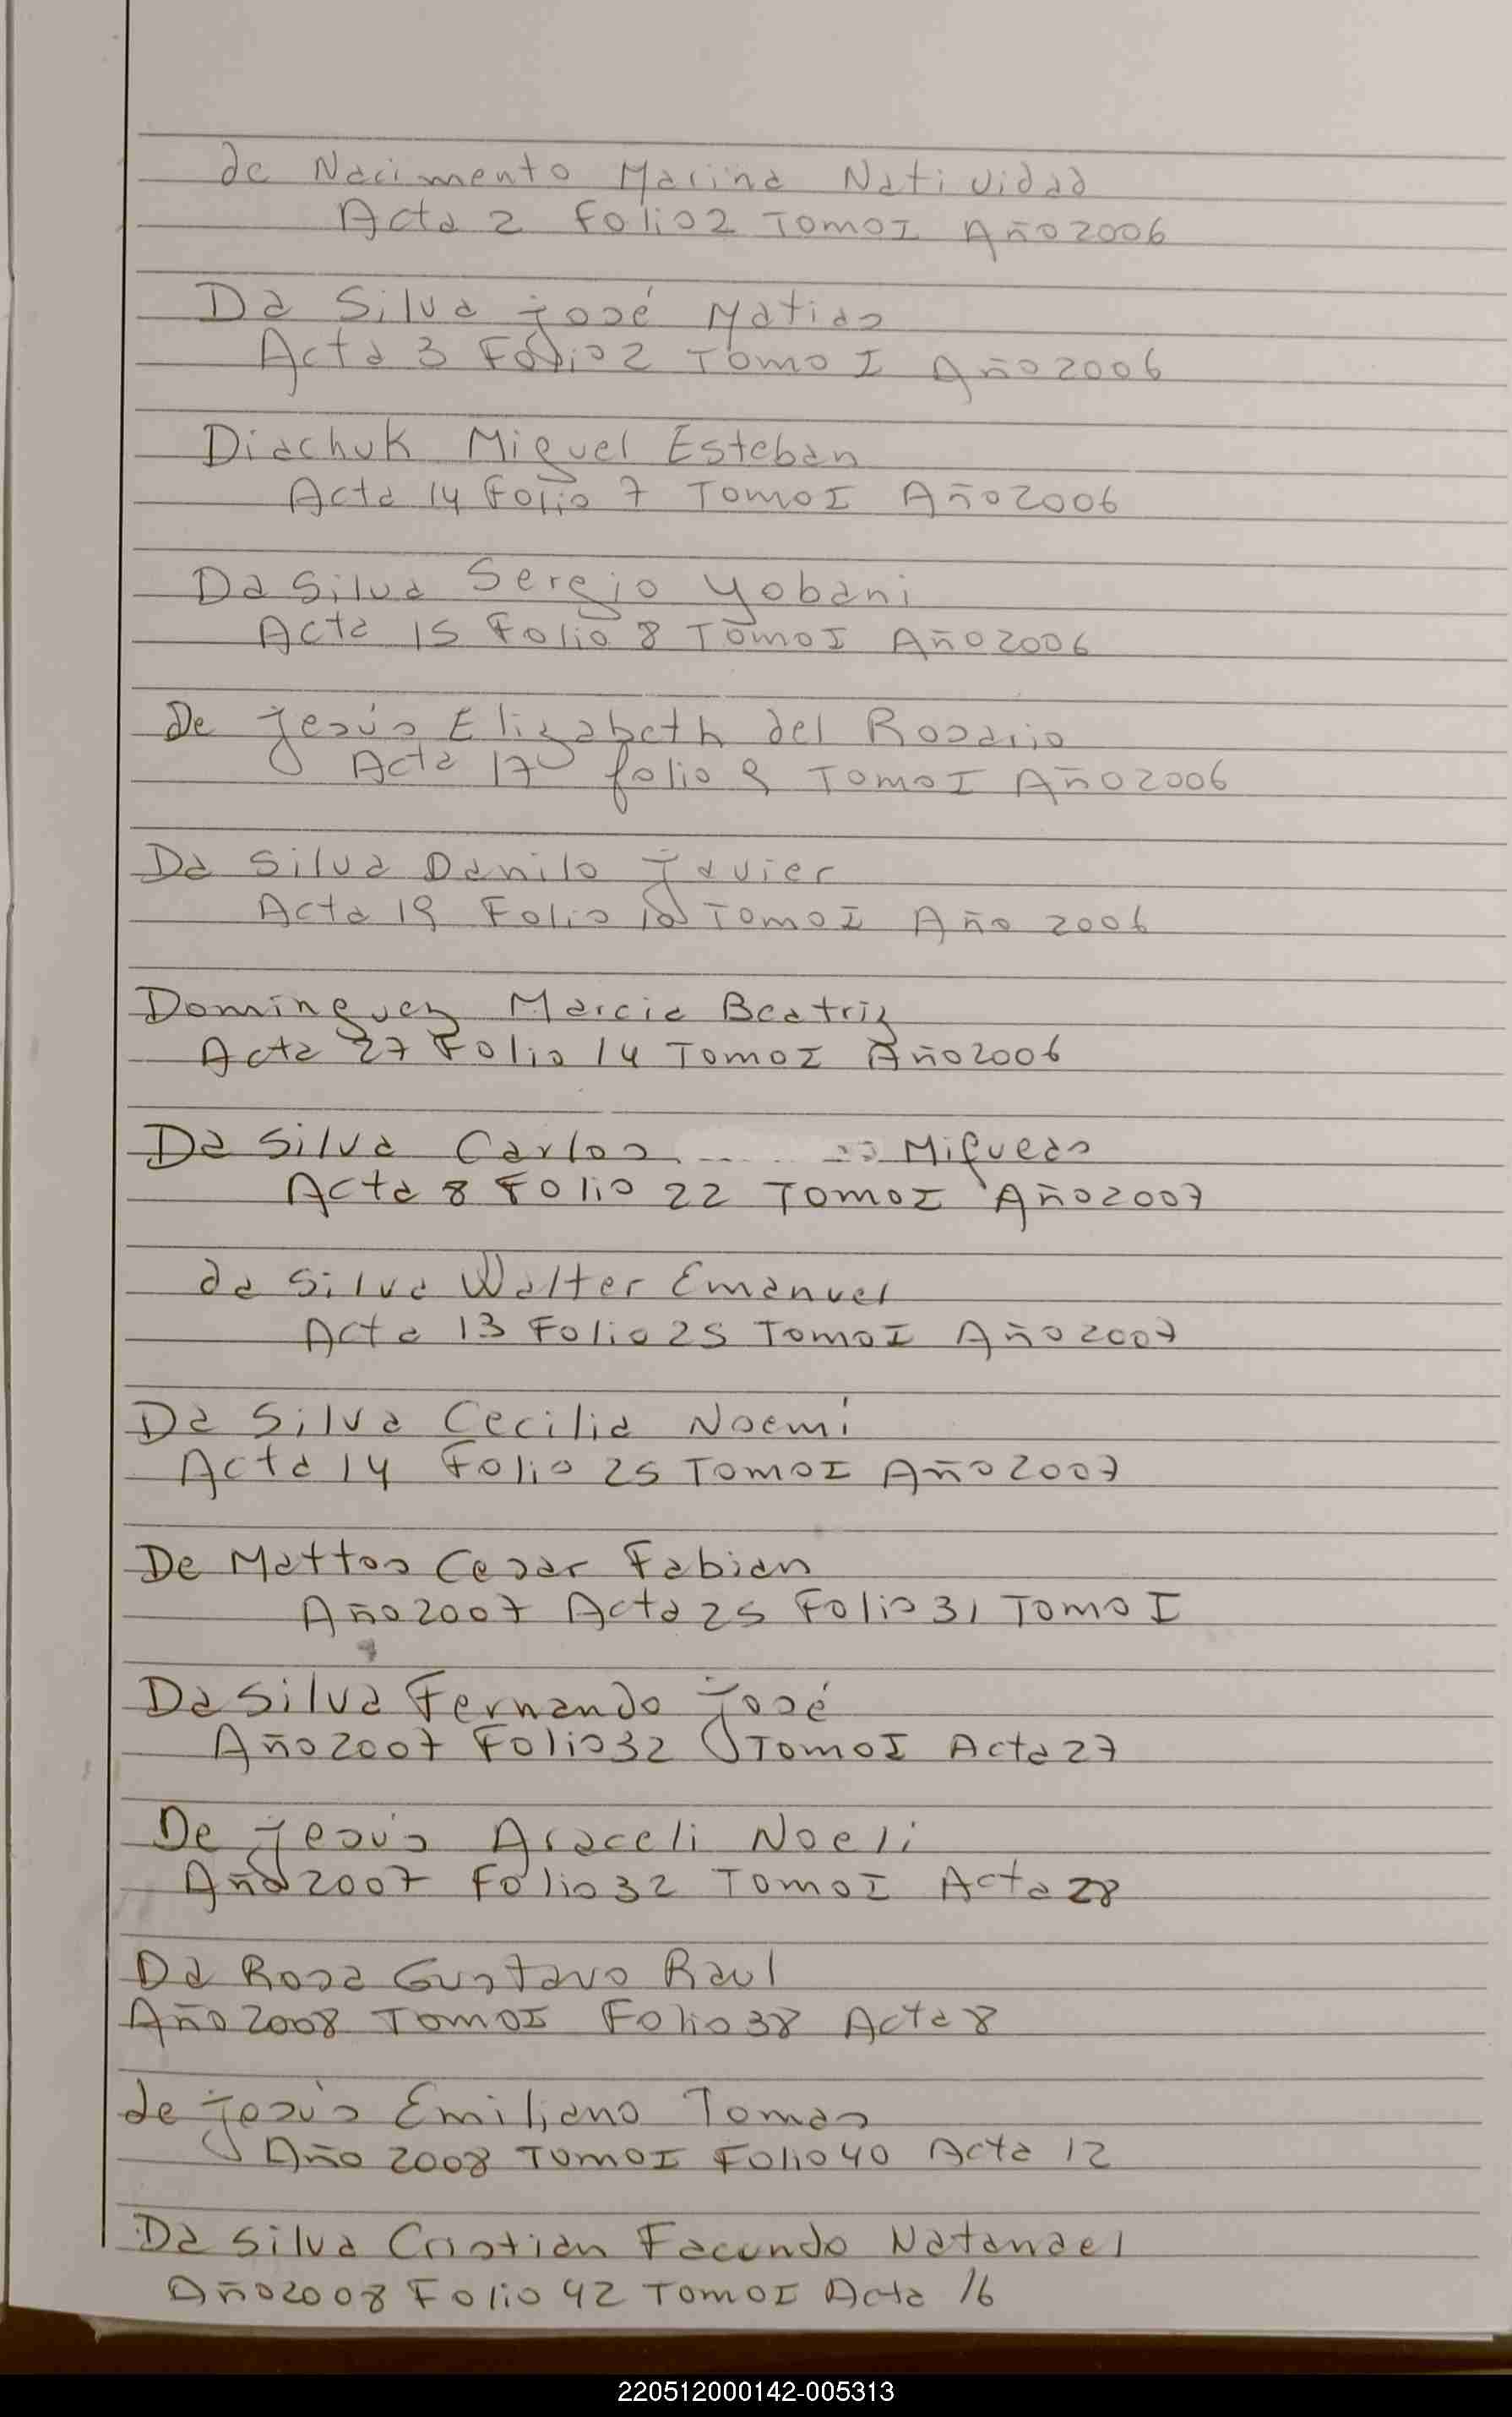 de Nacimento Marina Natividad
Acta 2 Folio 2 Tomo I Año 2006
Da Silva José Matias
Acta 3 Folio 2 Tomo I Año 2006
Diachuk Miguel Esteban
Acta 14 Folio 7 Tomo I Año 2006
Da Silva Sergio Yobani
Acta 15 Folio 8 Tomo I Año 2006
De Jesús Elizabeth del Rosario
Acta 17 folio 9 Tomo I Año 2006
Da Silva Danilo Javier
Acta 19 Folio 10 Tomo I Año 2006
Dominguez Marcia Beatriz
Acta 27 Folio 14 Tomo I Año 2006
Da Silva Carlos Miqueas
Acta 8 Folio 22 Tomo I Año 2007
da Silva Walter Emanuel
Acta 13 Folio 25 Tomo I Año 2007
Da Silva Cecilia Noemí
Acta 14 Folio 25 Tomo I Año 2007
De Mattos Cesar Fabian
Año 2007 Acta 25 Folio 31 Tomo I
Da Silva Fernando José
Año 2007 Folio 32 Tomo I Acta 27
De Jesús Araceli Noeli
Año 2007 Folio 32 Tomo I Acta 28
Da Rosa Gustavo Raul
Año 2008 Tomo I Folio 38 Acta 8
de Jesús Emiliano Tomas
Año 2008 Tomo I Folio 40 Acta 12
Da Silva Cristian Facundo Natanael
Año 2008 Folio 42 Tomo I Acta 16
220512000142-005313